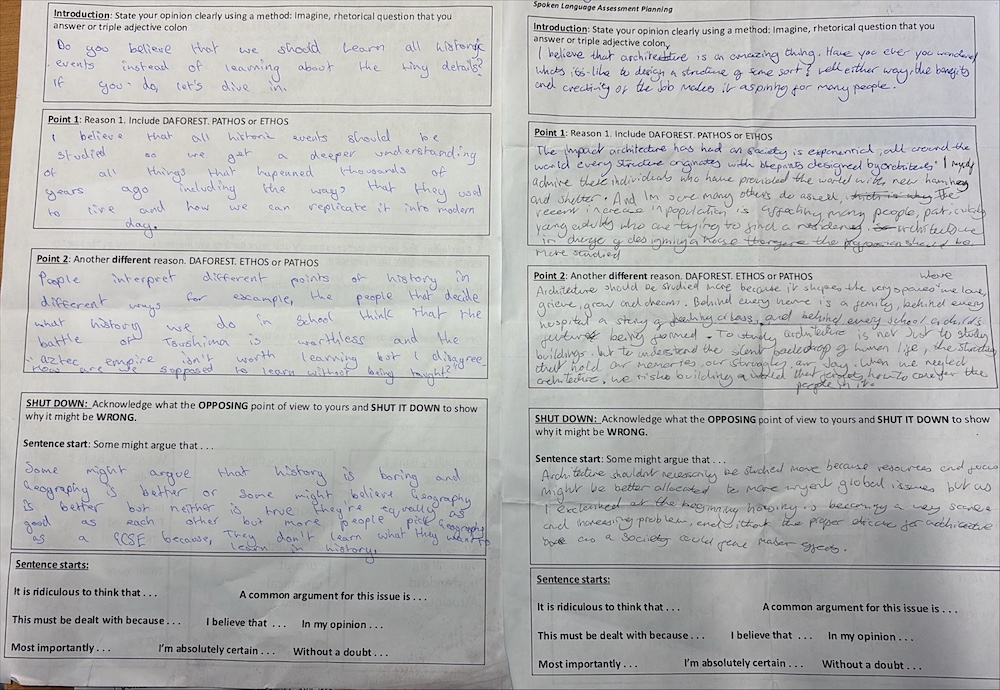 Introduction: State your opinion clearly using a method: Imagine, rhetorical question that you
answer or triple adjective colon
Do you believe that we should learn all historic
events instead of learning about the tiny details?
If you do, let's dive in.
Point 1: Reason 1. Include DAFOREST. PATHOS or ETHOS
I believe that all historic events should be
studied so we get a deeper understanding
of all things that happened thousands of
years ago including the ways that they used
to live and how we can replicate it into modern
day.
Point 2: Another different reason. DAFOREST. ETHOS or PATHOS
People interpret different points of history in
different ways for example, the people that decide
what history we do in School think that the
battle of Tsushima is worthless and the
aztec empire isn't worth learning but I disagree
How are we supposed to learn without being taught?
SHUT DOWN: Acknowledge what the OPPOSING point of view to yours and SHUT IT DOWN to show
why it might be WRONG.
Sentence start: Some might argue that . . .
Some might argue that history is boring and
Geography is better or some might believe Geography
is better but neither is true they're equally as
good as each other but more people pick Geography
as a GCSE because, They don't learn what they want to
learn in history.
Sentence starts:
It is ridiculous to think that . . . A common argument for this issue is . . .
This must be dealt with because . . . I believe that . . . In my opinion . . .
Most importantly . . . I'm absolutely certain . . . Without a doubt . . .
Spoken Language Assessment Planning
Introduction: State your opinion clearly using a method: Imagine, rhetorical question that you
answer or triple adjective colon
I believe that architecture is an amazing thing. Have you ever you wondered
whats its like to design a structure of some sort? well either way, the benefits
and creativity of the job makes it aspiring for many people.
Point 1: Reason 1. Include DAFOREST. PATHOS or ETHOS
The impact architecture has had on society is exponential, all around the
world every structure originates with blueprints designed by architects. I myself
admire these individuals who have provided the world with new
and shelter. And Im sure many others do aswell. The
recent increase in population is affecting many people, particularly
young adults who are trying to find a residence. architecture
in charge of designing a house therefore the should be
more studied
Point 2: Another different reason. DAFOREST. ETHOS or PATHOS
Architecture should be studied more because it shapes the very spaces we love,
grieve, grow and dream. Behind every home is a family, behind every
hospital a story of , and behind every school a child's
future being formed. To study architecture is not just to study
buildings. but to understand the silent backdrop of human life, the structures
that hold our memories, our struggles, our joy. When we neglect
architecture, we risk building a world that forgets how to care for the
people in it.
SHUT DOWN: Acknowledge what the OPPOSING point of view to yours and SHUT IT DOWN to show
why it might be WRONG.
Sentence start: Some might argue that . . .
Architecture shouldn't necessarily be studied more because resources and focus
might be better allocated to more urgent global issues but as
I exclaimed at the beginning housing is becoming a very scarce
and increasing problem, and without the proper for architecture
as a society could face effects.
Sentence starts:
It is ridiculous to think that . . . A common argument for this issue is . . .
This must be dealt with because . . . I believe that . . . In my opinion . . .
Most importantly . . . I'm absolutely certain . . . Without a doubt . . .